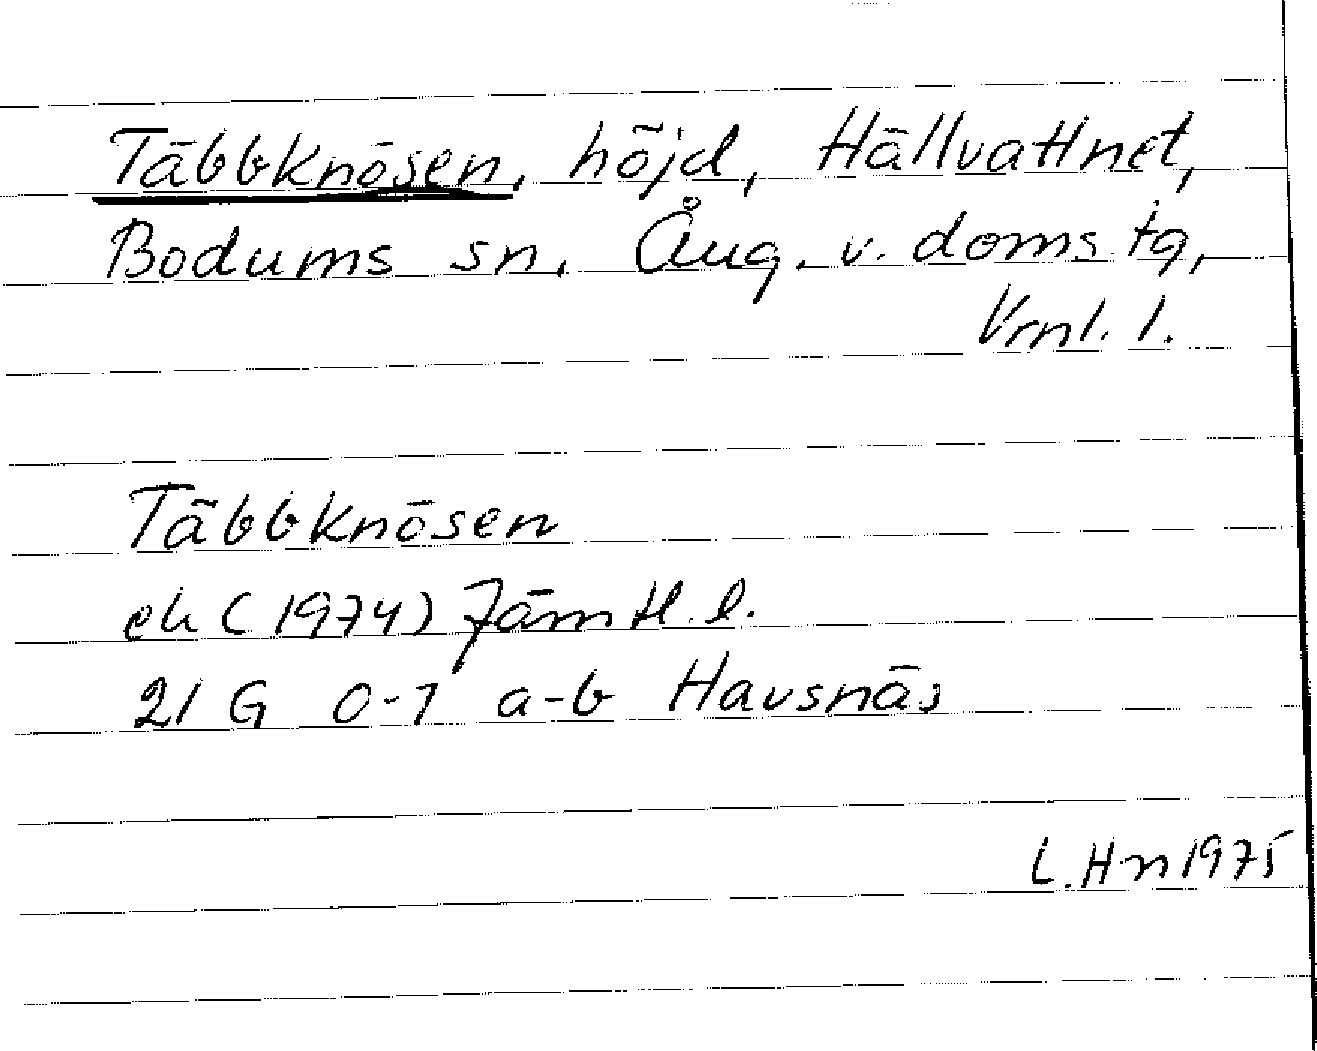 Täbbknösen, höjd, Hällvattnet,
Bodums sn, Ång. v. doms tg,
Vrnl. l.
Täbbknösen
ek (1974) Jämtl. l.
21 G 0-1 a-b Havsnäs
L. H-n 1975